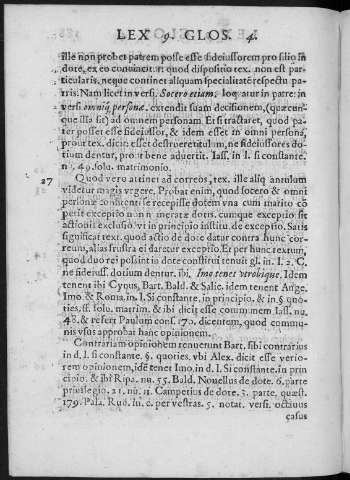 LEX 9. GLOS. 4.
ille non probet patrem posse esse fideiussorem pro filio in
dote, ex eo convincit. rt quod dispositio tex. non est par-
ticularis. neque continet aliquam specialitatẽ respectu pa-
tris. Nam licet in versi. Socero etiam. loquatur in patre: in
versi omniq; personæ. extendit suam decisionem, (quæcun-
que illa sit) ad omnem personam. Et si tractaret, quod pa-
ter posset esse fideiussor, & idem esset in omni persona,
prout tex. dicit: esset destrueretitulum, ne fideiussores do-
tium dentur, prout bene aduertit. Iass. in l. si constante.
nu. 49. solu. matrimonio.
27 Quod vero attinet ad correos, tex. ille aliq̃ antulum
videtur magis vrgere. Probat enim, quod socero & omni
personæ condicenti se recepisse dotem vna cum marito cõ
petit exceptio non numeratæ dotis. cumque exceptio sit
actionis exclusio. vt in principio institu. de exceptio. Satis
significat text. quod actio de dote datur contra hunc cor-
reum, alias frustra ei daretur exceptio. Et per hunc textum,
quod duo rei possint in dote constitui tenuit gl. in l. 2. C.
ne fideiuss. dotium dentur. ibi, Imo tenet vtrobique. Idem
tenent ibi Cynus, Bart. Bald. & Salic. idem tenent Ange.
Imo. & Roma. in. l. Si constante, in principio, & in §. quo-
ties. ff. solu. matrim. & ibi dicit esse commũnem Iass. nu.
48. & refert Paulum cons. 170. dicentem, quod commu-
nis vsus approbat hanc opinionem.
Contrariam opinionem tenuerunt Bart. sibi contrarius
in d. l. si constante. §. quoties. vbi Alex. dicit esse verio-
rem opinionem, idẽ tenet Imo. in d. l. Si constante. in prin
cipio. & ibi Ripa. nu. 55. Bald. Nouellus de dote. 6. parte
priuilegio. 21. nu. 11. Campetius de dote. 3. parte, quæst.
179. Pala. Ruu. in. c. per vestras. 5. notat. versi. octauus
casus